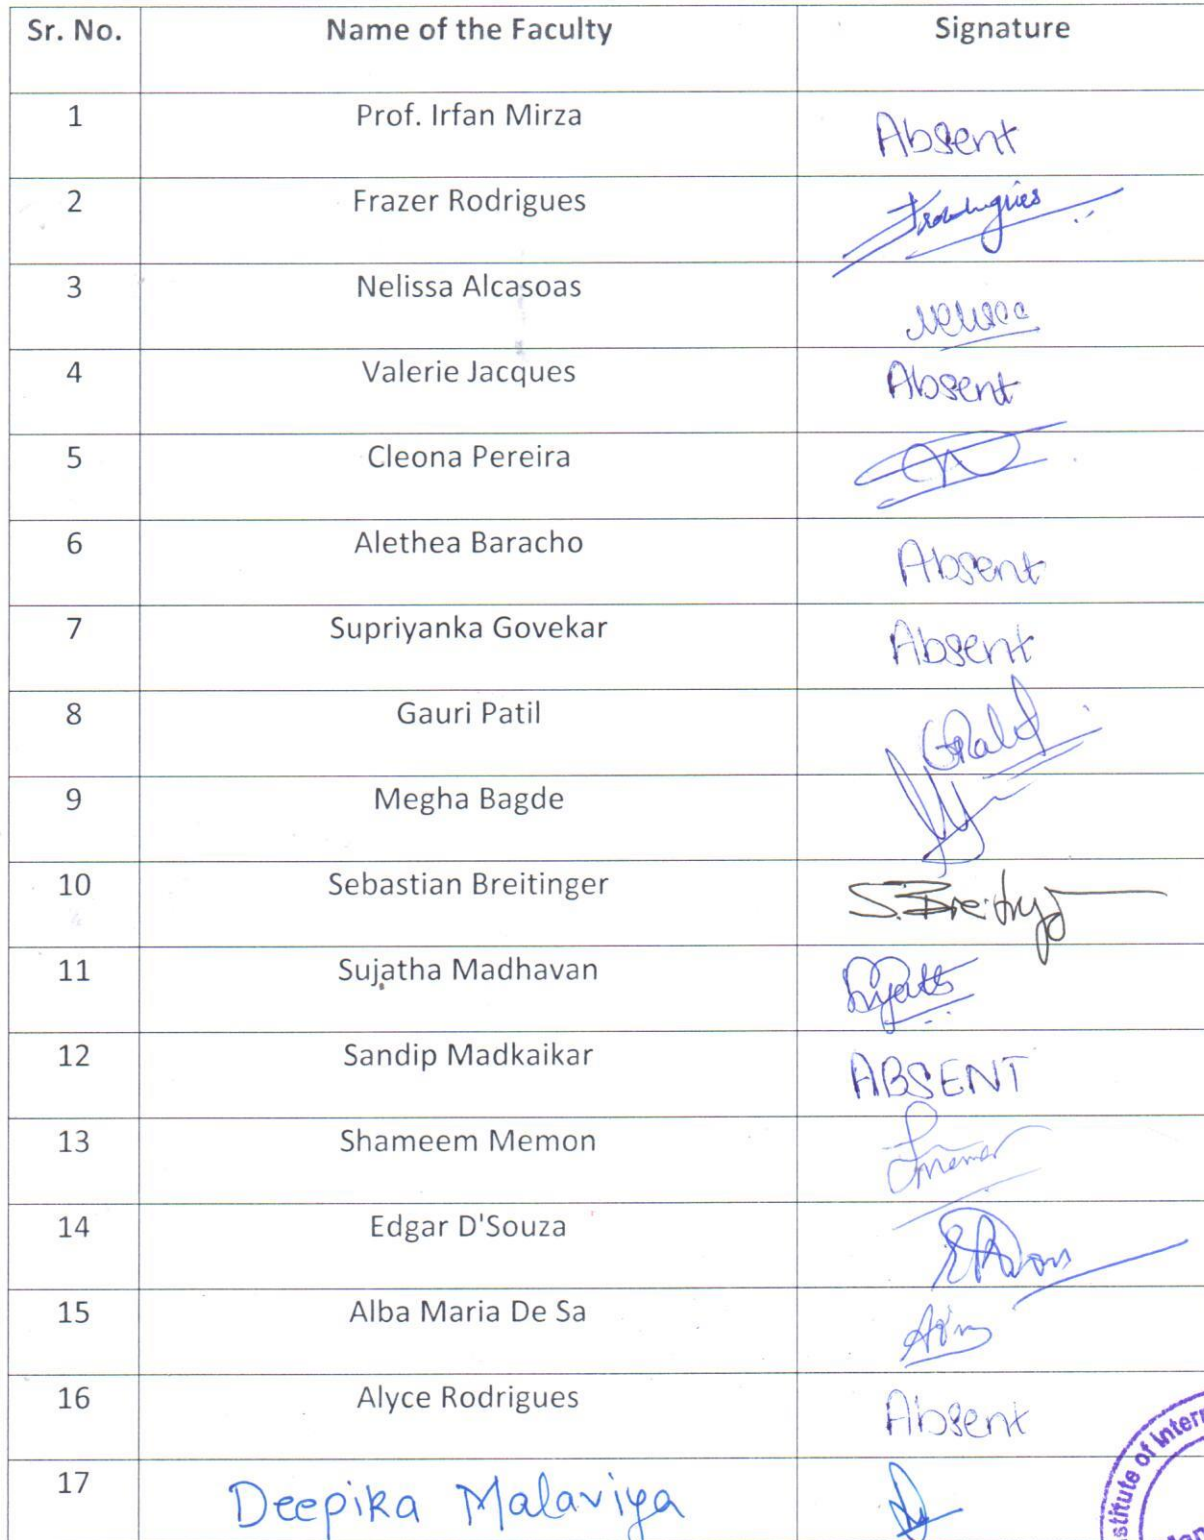 Sr. No. Name of the Faculty Signature
1 Prof. Irfan Mirza Absent
2 Frazer Rodrigues
3 Nelissa Alcasoas Nelissa
4 Valerie Jacques Absent
5 Cleona Pereira
6 Alethea Baracho Absent
7 Supriyanka Govekar Absent
8 Gauri Patil
9 Megha Bagde
10 Sebastian Breitinger
11 Sujatha Madhavan
12 Sandip Madkaikar ABSENT
13 Shameem Memon
14 Edgar D'Souza
15 Alba Maria De Sa
16 Alyce Rodrigues Absent
17 Deepika Malaviya
stitute of Intern